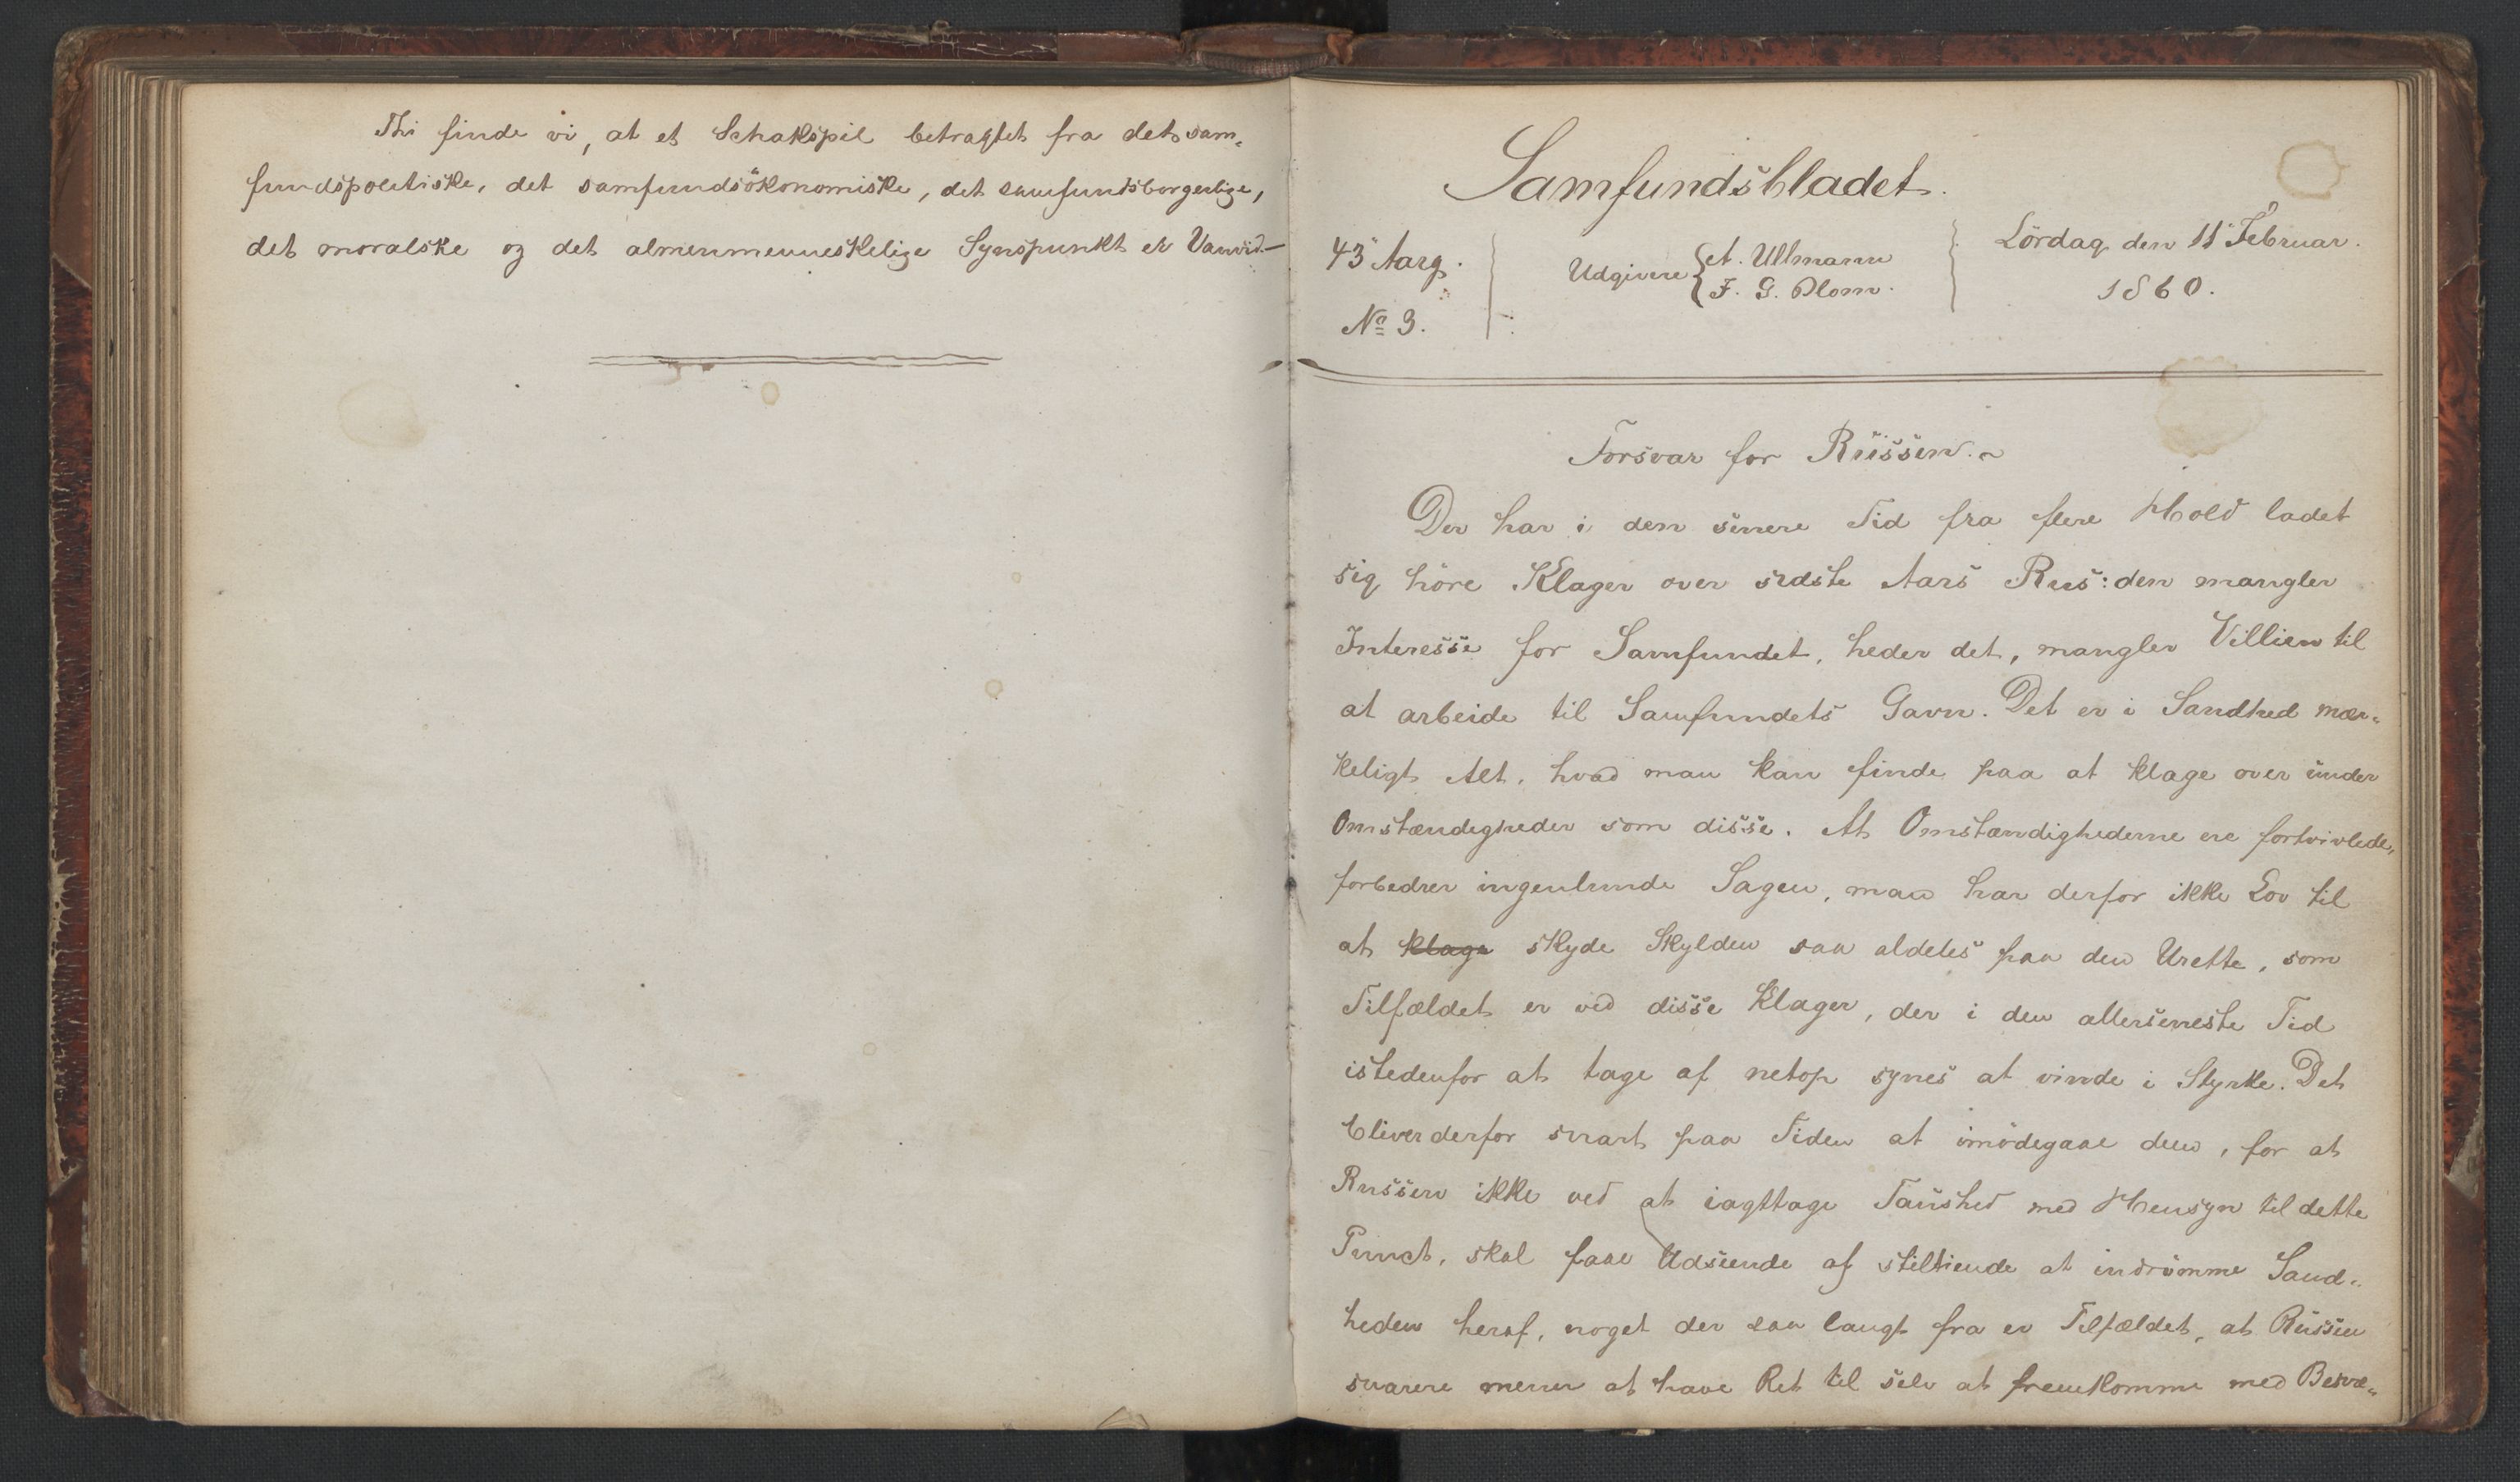 Thi finde vi, at et Schakspil betragtet fra det sam„
fundspolitiske, det samfundsökonomiske, det samfundsborgerlige,
det moralske og det almenmenneskelige Synspunkt er Vanvid.—
Samfundsbladet.
43 Aarg.
No 3.
Udgivere { A. Ullmann
F. G. Blom.
Lördag den 11 Februar.
1860.
Forsvar for Russen.
Der har i den senere Tid fra flere Hold ladet
sig höre Klager over sidste Aars Rus: den mangler
Interesse for Samfundet, heder det, mangler Villien til
at arbeide til Samfundets Gavn. Det er i Sandhed mær„
keligt Alt, hvad man kan finde paa at klage over under
Omstændigheder som disse. At Omstændighederne ere fortvivlede,
forbedrer ingenlunde Sagen, man har derfor ikke Lov til
at klage skyde Skylden saa aldeles paa den Urette, som
Tilfældet er ved disse Klager, der i den allerseneste Tid
istedenfor at tage af netop synes at vinde i Styrke. Det
bliver derfor snart paa Tiden at imödegaae dem, for at
Russen ikke ved at iagttage Taushed med Hensyn til dette
Punct, skal faae Udseende af stiltiende at indrömme Sand„
heden heraf, noget der saa langt fra er Tilfældet, at Russen
snarere mener at have Ret til selv at fremkomme med Besvæ„